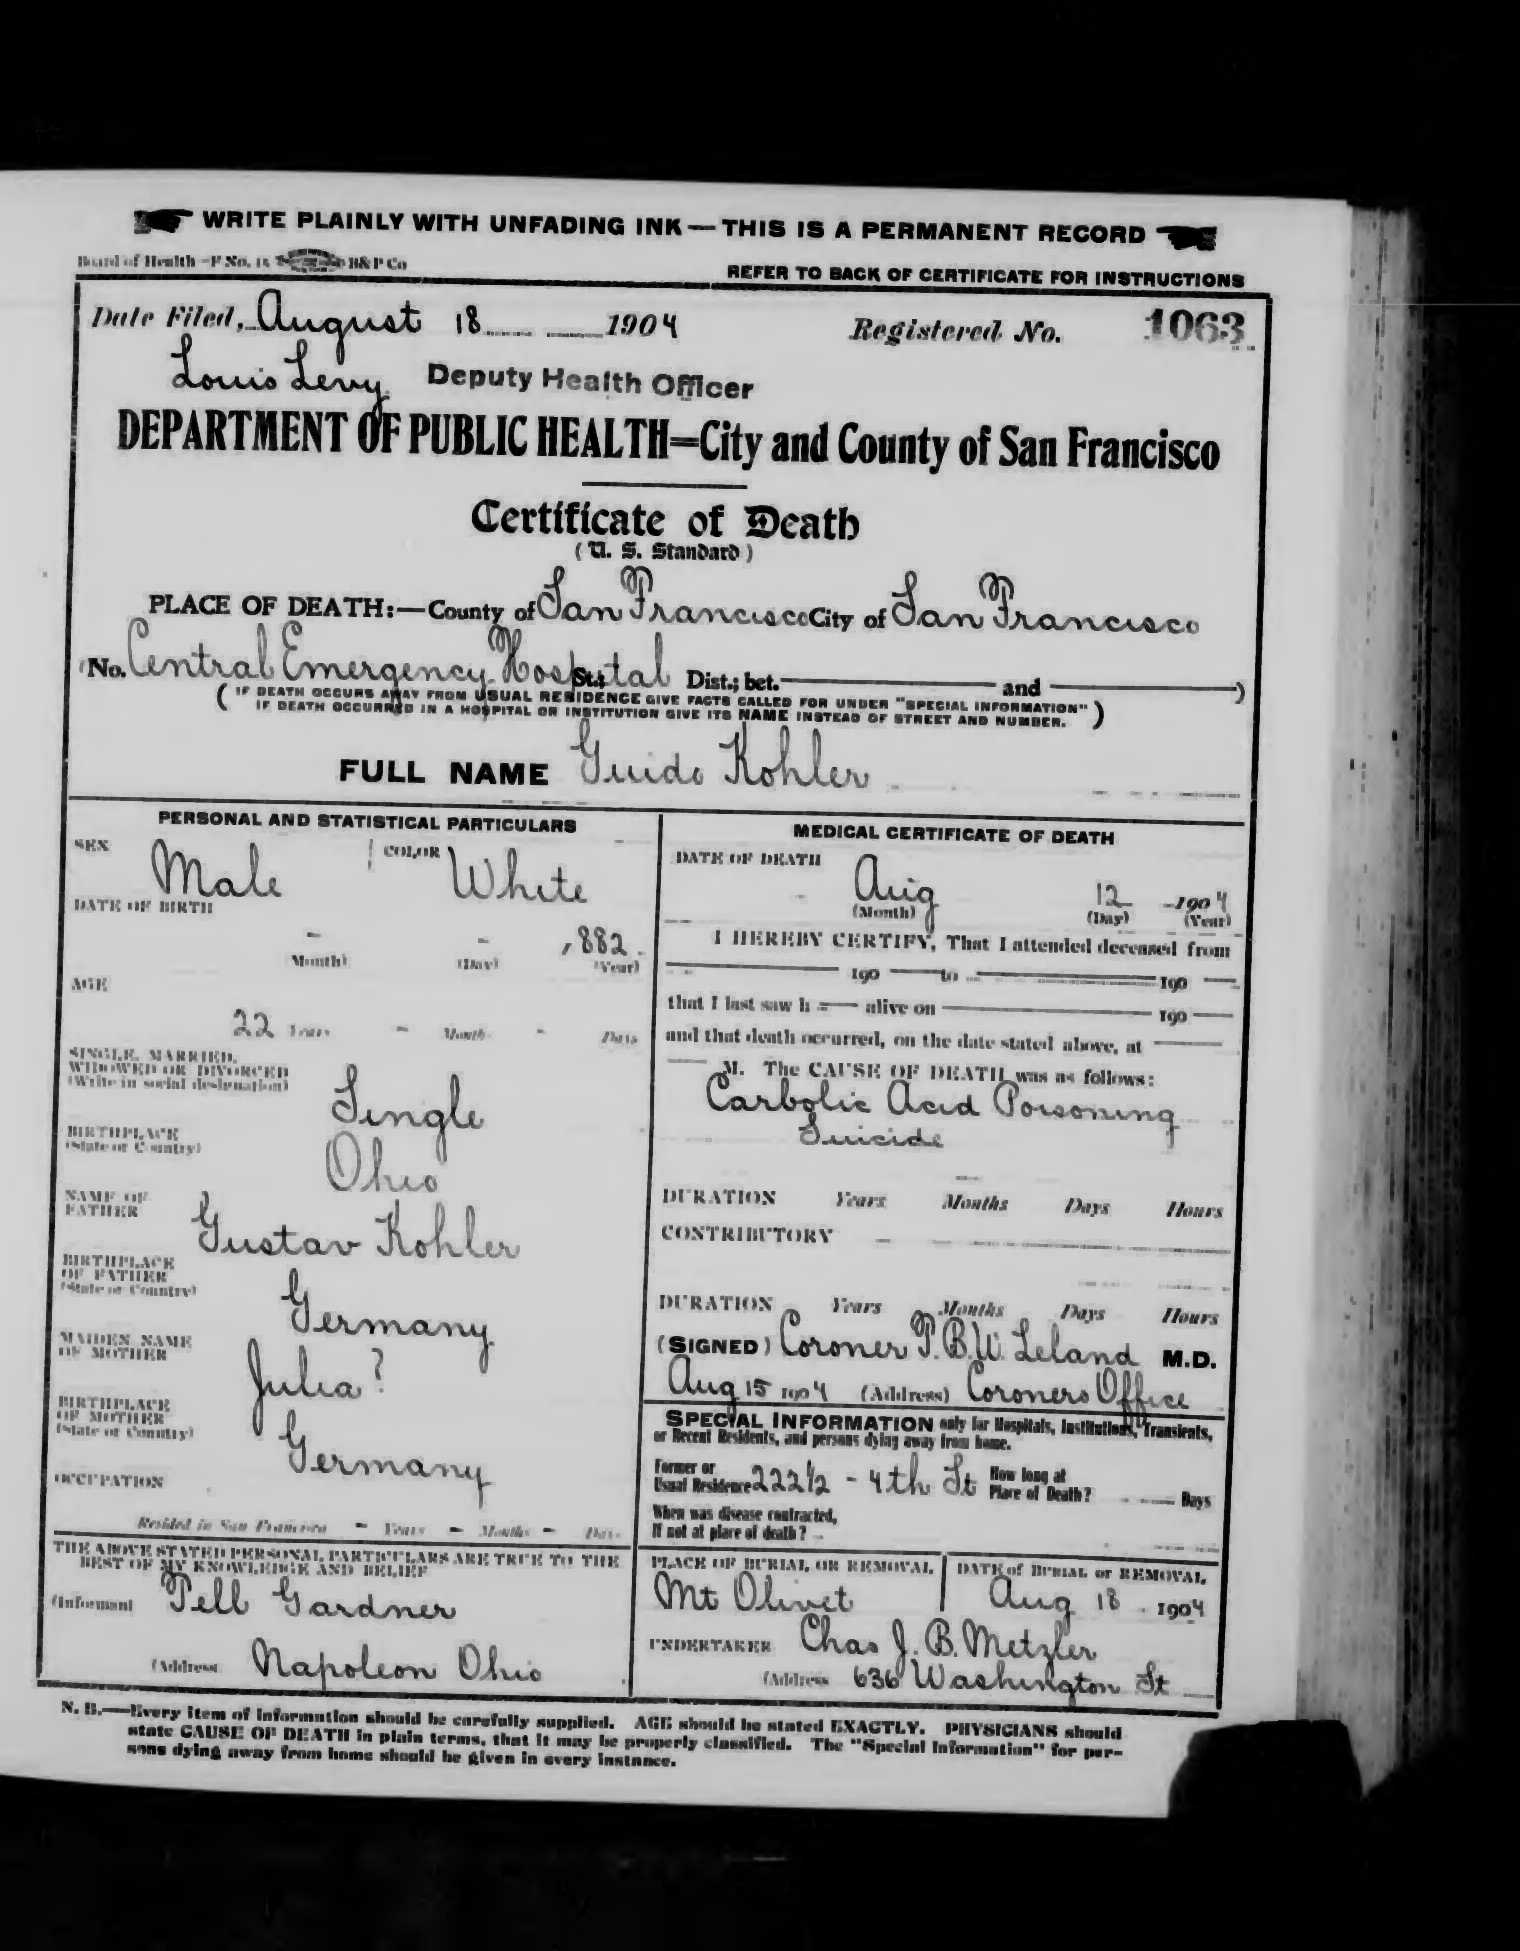 WRITE PLAINLY WITH UNFADING INK — THIS IS A PERMANENT RECORD
Board of Health—F No. 15 B&P Co
REFER TO BACK OF CERTIFICATE FOR INSTRUCTIONS
Date Filed, August 18 1904 Registered No. 1063
Louis Levy Deputy Health Officer
DEPARTMENT OF PUBLIC HEALTH=City and County of San Francisco
Certificate of Death
(U. S. Standard)
PLACE OF DEATH:—County of San Francisco City of San Francisco
(No. Central Emergency Hospital St.; Dist.; bet. — and —)
(IF DEATH OCCURS AWAY FROM USUAL RESIDENCE GIVE FACTS CALLED FOR UNDER "SPECIAL INFORMATION"
IF DEATH OCCURRED IN A HOSPITAL OR INSTITUTION GIVE ITS NAME INSTEAD OF STREET AND NUMBER.)
FULL NAME Guido Kohler
PERSONAL AND STATISTICAL PARTICULARS
SEX Male COLOR White
DATE OF BIRTH
- - 1882
(Month) (Day) (Year)
AGE
22 Years - Months - Days
SINGLE, MARRIED,
WIDOWED OR DIVORCED
(Write in social designation)
Single
BIRTHPLACE
(State or Country)
Ohio
NAME OF
FATHER
Gustav Kohler
BIRTHPLACE
OF FATHER
(State or Country)
Germany
MAIDEN NAME
OF MOTHER
Julia ?
BIRTHPLACE
OF MOTHER
(State or Country)
Germany
OCCUPATION
Resided in San Francisco - Years - Months - Days
THE ABOVE STATED PERSONAL PARTICULARS ARE TRUE TO THE
BEST OF MY KNOWLEDGE AND BELIEF
(Informant Tell Gardner
(Address Napoleon Ohio
MEDICAL CERTIFICATE OF DEATH
DATE OF DEATH
Aug 12 1904
(Month) (Day) (Year)
I HEREBY CERTIFY, That I attended deceased from
— 190 — to — 190 —
that I last saw h — alive on — 190 —
and that death occurred, on the date stated above, at —
— M. The CAUSE OF DEATH was as follows:
Carbolic Acid Poisoning
Suicide
DURATION Years Months Days Hours
CONTRIBUTORY -
DURATION Years Months Days Hours
(SIGNED) Coroner T.B.W. Leland M.D.
Aug 15 1904 (Address) Coroners Office
SPECIAL INFORMATION only for Hospitals, Institutions, Transients,
or Recent Residents, and persons dying away from home.
Former or
Usual Residence 222 1/2 - 4th St How long at
Place of Death? Days
When was disease contracted,
If not at place of death?
PLACE OF BURIAL OR REMOVAL
Mt Olivet
DATE of BURIAL or REMOVAL
Aug 18 1904
UNDERTAKER Chas J. B. Metzler
(Address 636 Washington St
N. B.—Every item of information should be carefully supplied. AGE should be stated EXACTLY. PHYSICIANS should
state CAUSE OF DEATH in plain terms, that it may be properly classified. The "Special Information" for per-
sons dying away from home should be given in every instance.